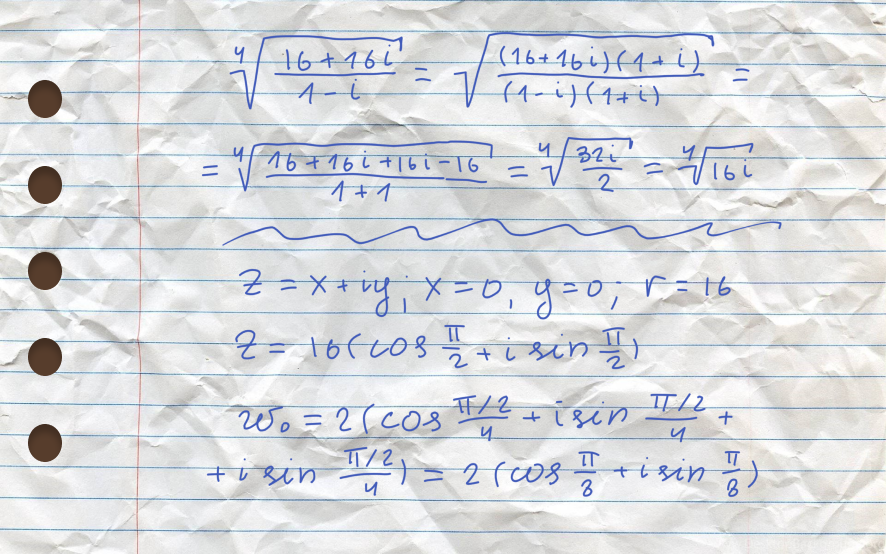 ⁴√((16+16i)/(1-i)) = √((16+16i)(1+i)/((1-i)(1+i))) =
= ⁴√((16+16i+16i-16)/(1+1)) = ⁴√(32i/2) = ⁴√(16i)
z = x+iy; x=0, y=0; r=16
z = 16(cos π/2 + i sin π/2)
w₀ = 2(cos (π/2)/4 + i sin (π/2)/4 +
+ i sin (π/2)/4) = 2(cos π/8 + i sin π/8)